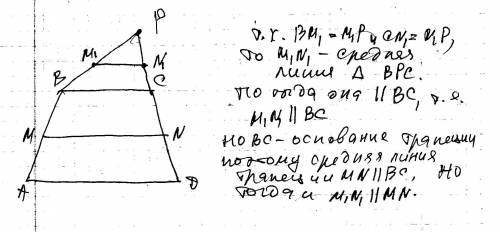 P
M₁
N₁
B
C
M
N
A
D
т.к. BM₁ = M₁P и CN₁ = N₁P,
то M₁N₁ – средняя
линия Δ BPC.
По тогда она || BC, т.е.
M₁N₁ || BC
НО BC – основание трапеции
поэтому средняя линия
трапеции MN || BC, НО
тогда и M₁N₁ || MN.